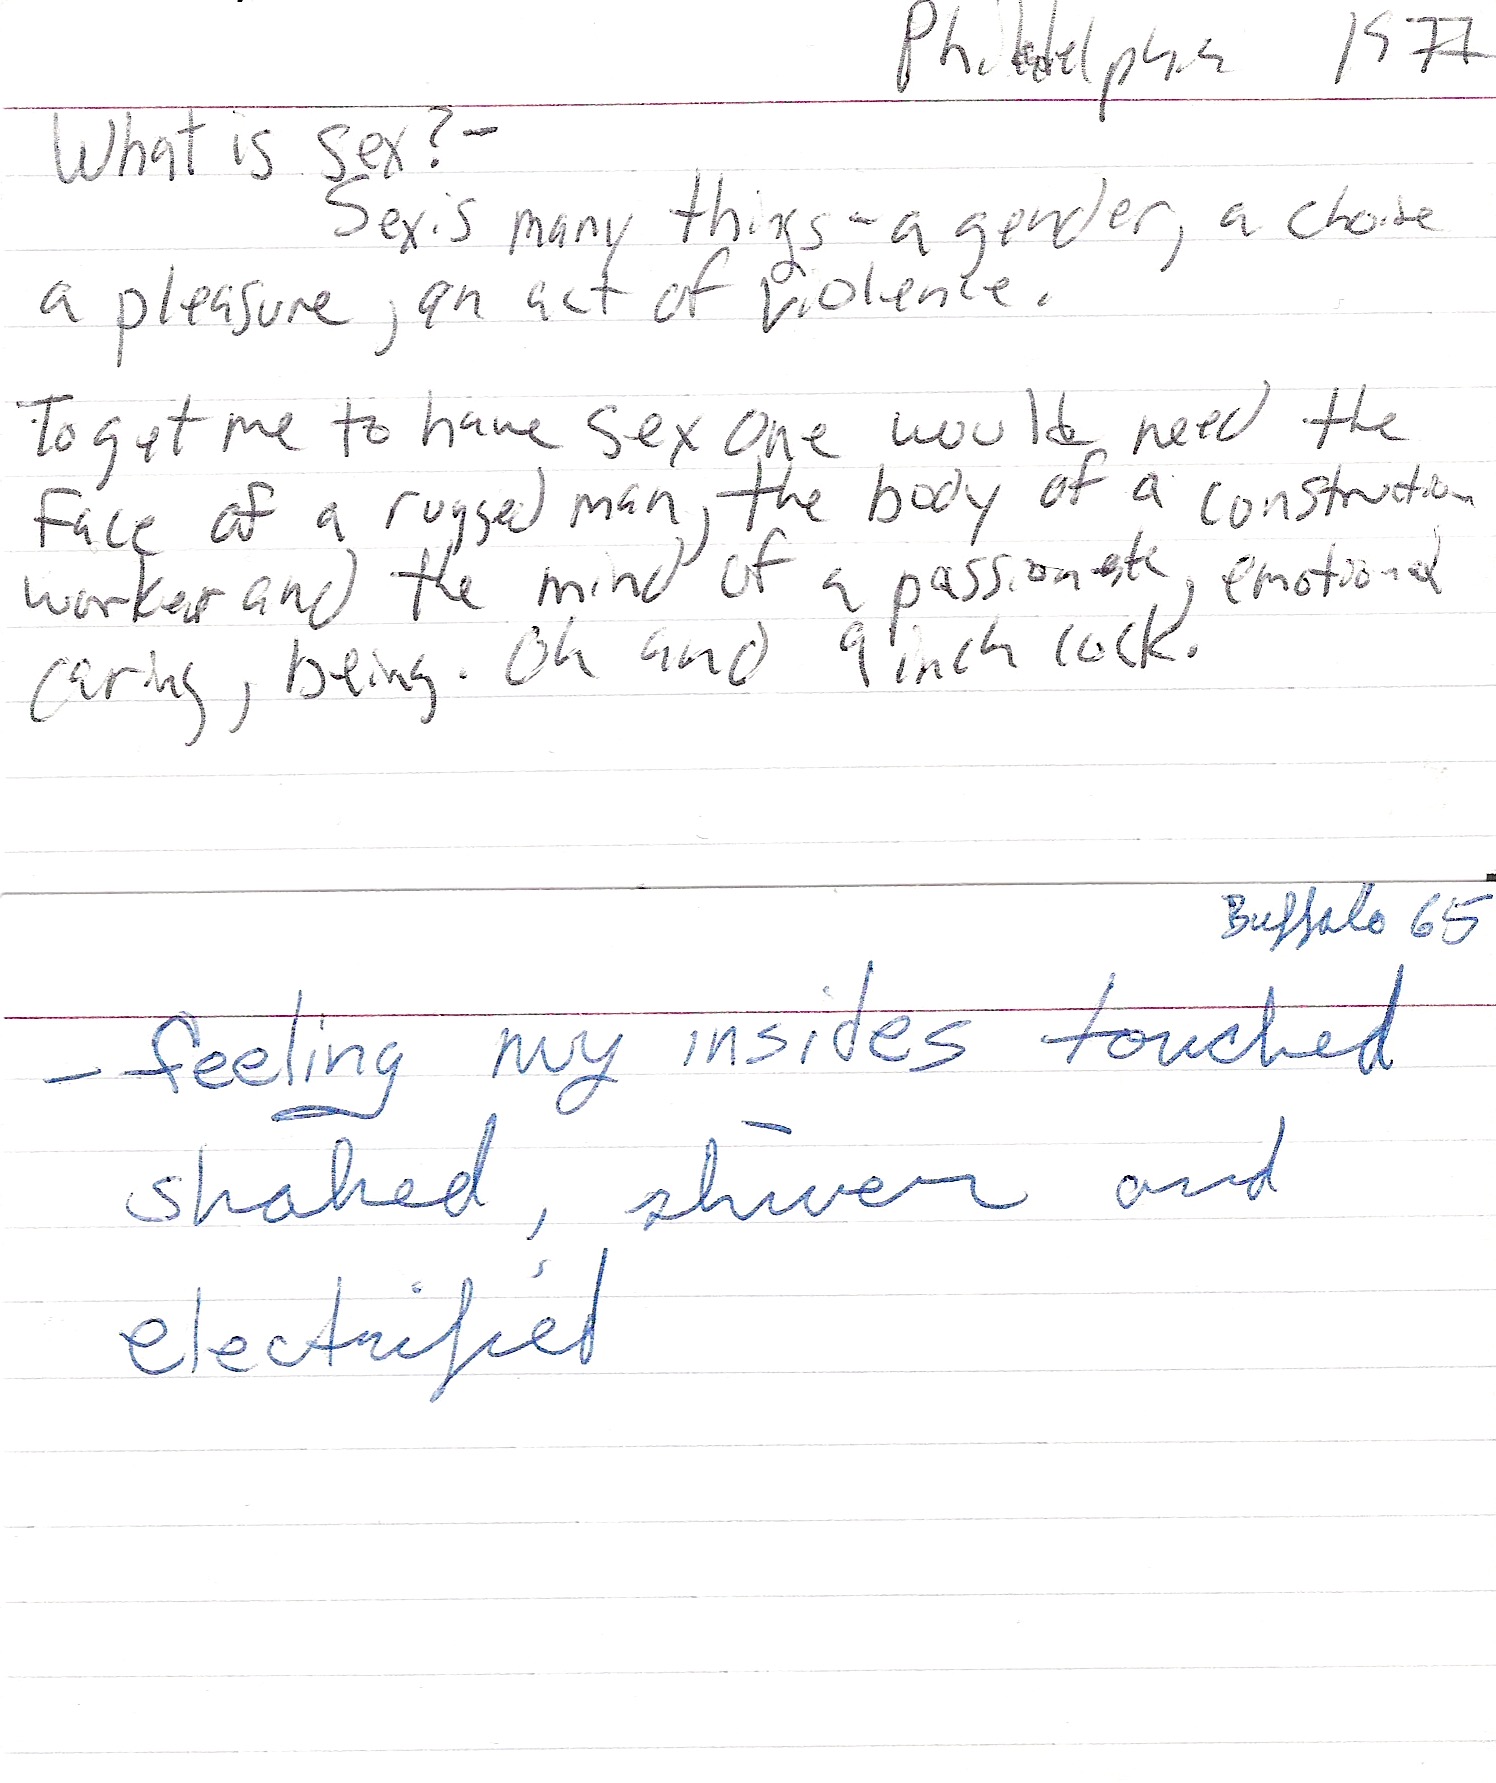 Philadelphia 1977
What is sex?-
Sex is many things - a gender, a choice
a pleasure, an act of violence.
To get me to have sex one would need the
face of a rugged man, the body of a construction
worker and the mind of a passionate, emotional
caring, being. Oh and 9 inch cock.
Buffalo 65
- feeling my insides touched
shaked, shiver and
electrified